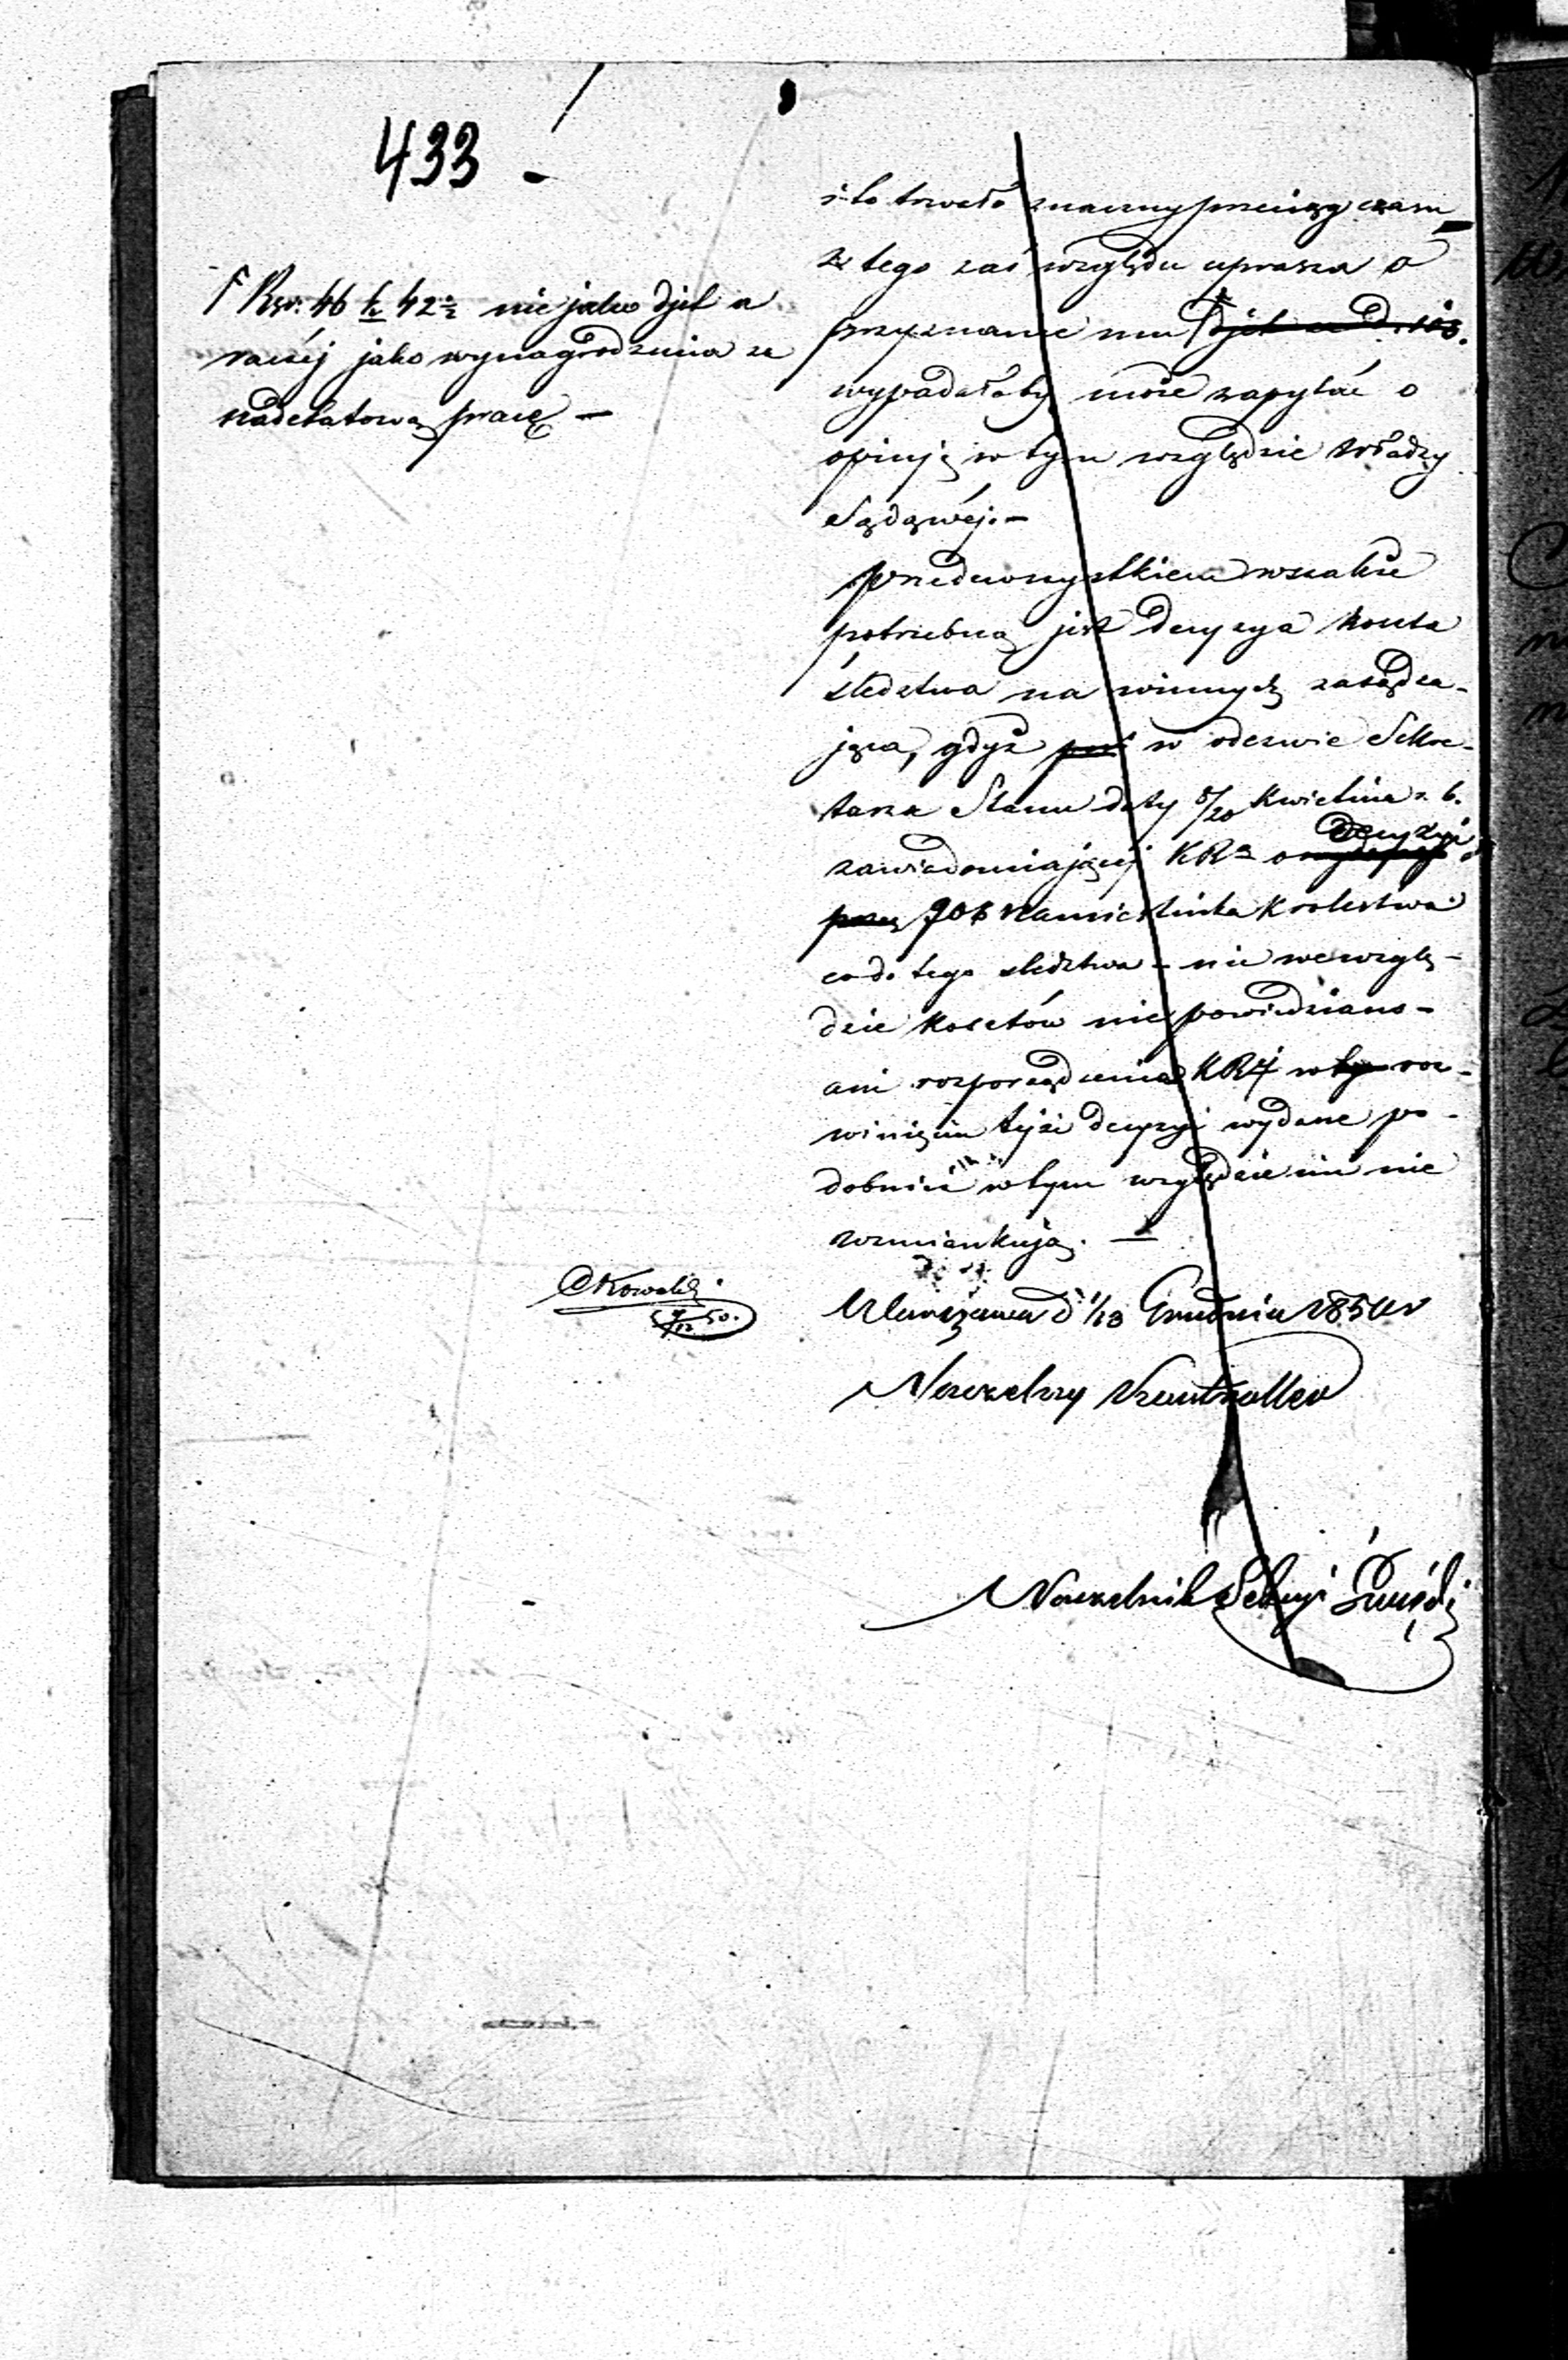 433 -
Rsr: 46 k 42½ nie jako djet a
raczéj jako wynagrodzenia za
nadetatową pracę —
i to trwało znaczny przeciąg czasu
z tego zaś względu uprasza o
przyznanie mu djet
wypadałoby może zapytać o
opinją w tym względzie władzy
Sądowéj. —
przedewszystkiem wszakże
potrzebną jest decyzya koszta
śledztwa na winnych zasądza-
jąca, gdyż w odezwie Sekre-
tarza Stanu daty 8/20 Kwietnia r. b.
zawiadamiającéj KRz o decyzyi
JOX Namiestnika Krolestwa
co do tego śledztwa - nic we wzglę-
dzie kosztów nie powiedziano -
ani rozporządzenia KRz w roz-
winięciu téjże decyzyi wydane po-
dobnież w tym względzie nic nie
wzmiankują. —
Warszawa d 1/13 Grudnia 1850 r
Naczelny Kontroller
Naczelnik Sekcyi
Kowalski
50.